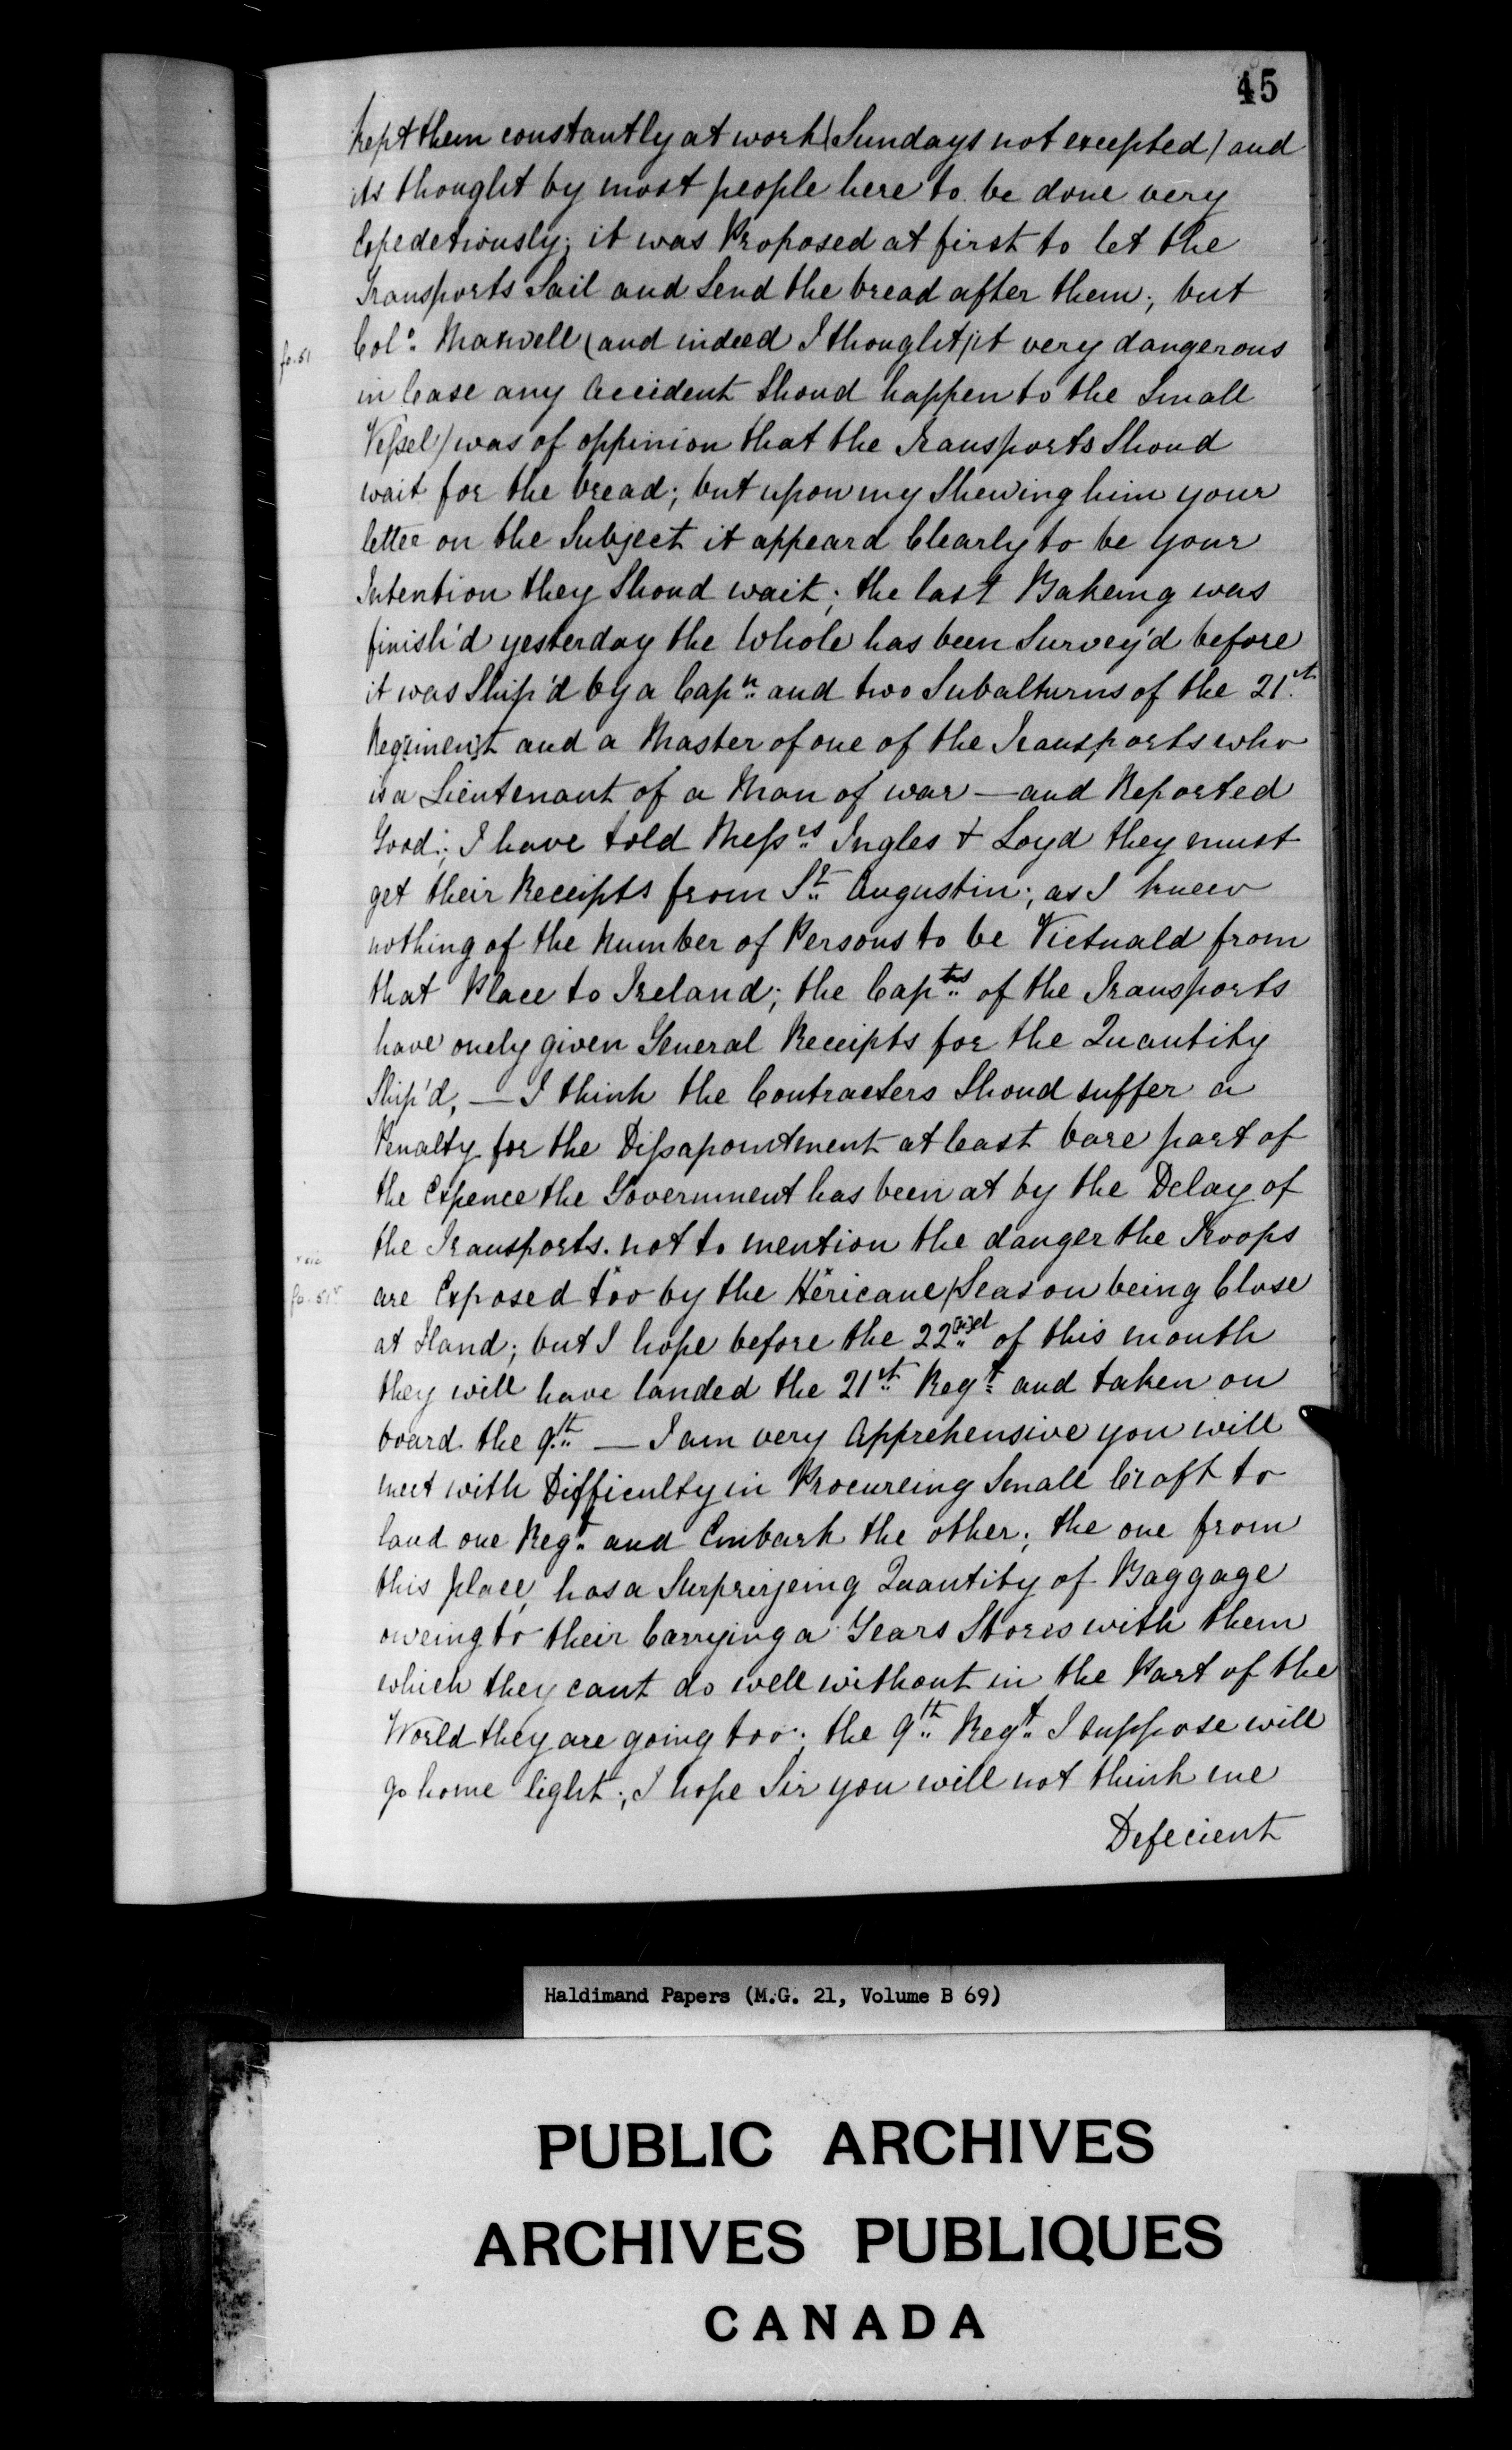 45
kept them constantly at work (Sundays not excepted) and
its thought by most people here to be done very
Expedetiously; it was Proposed at first to let the
Transports Sail and Send the bread after them; but
fo. 51
Colo. Maxwell (and indeed I thought) it very dangerous
in Case any Accident Shoud happen to the Small
Vessel) was of oppinion that the Transports Shoud
wait for the bread; but upon my Shewing him your
letter on the Subject it appeard Clearly to be your
Intention they Shoud wait; the last Bakeing was
finish'd yesterday the Whole has been Survey'd before
it was Ship'd by a Capn. and two Subalturns of the 21st.
Reg[imen]t and a Master of one of the Transports who
is a Lieutenant of a Man of war — and Reported
Good; I have told Messrs. Ingles & Loyd they must
get their Receipts from St. Augustin; as I knew
nothing of the Number of Persons to be Victuald from
that Place to Ireland; the Capts. of the Transports
have onely given General Receipts for the Quantity
Ship'd, — I think the Contracters Shoud suffer a
Penalty for the Dissapointment at least bare part of
the Expence the Government has been at by the Delay of
the Transports. not to mention the danger the Troops
fo. 51v
are Exposed too by the Hericane Season being Close
at Hand; but I hope before the 22[n]d of this month
they will have landed the 21st. Regt. and taken on
board the 9th. — I am very Apprehensive you will
meet with Difficulty in Procureing Small Craft to
land one Regt. and Embark the other; the one from
this place, has a Surpriseing Quantity of Baggage
oweing to their Carrying a Years Stores with them
which they cant do well without in the Part of the
World they are going too; the 9th. Regt. I suppose will
go home light; I hope Sir you will not think me
Defecient
Haldimand Papers (M.G. 21, Volume B 69)
PUBLIC ARCHIVES
ARCHIVES PUBLIQUES
CANADA